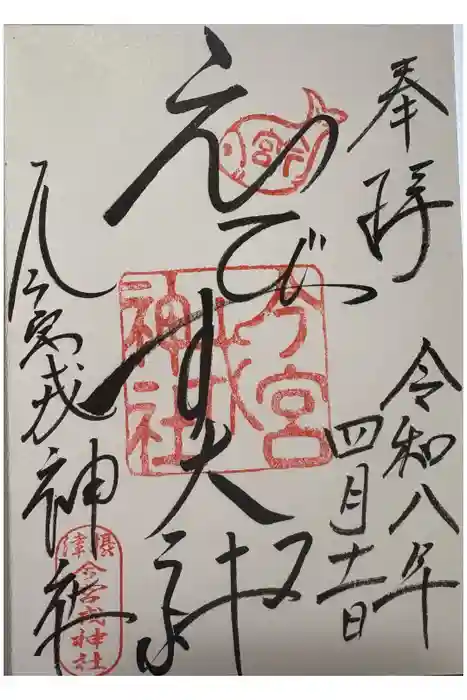 奉拝
令和八年
四月十一日
えびす大
今宮
今宮戎神社
今宮戎神社
摂津
今宮戎神社